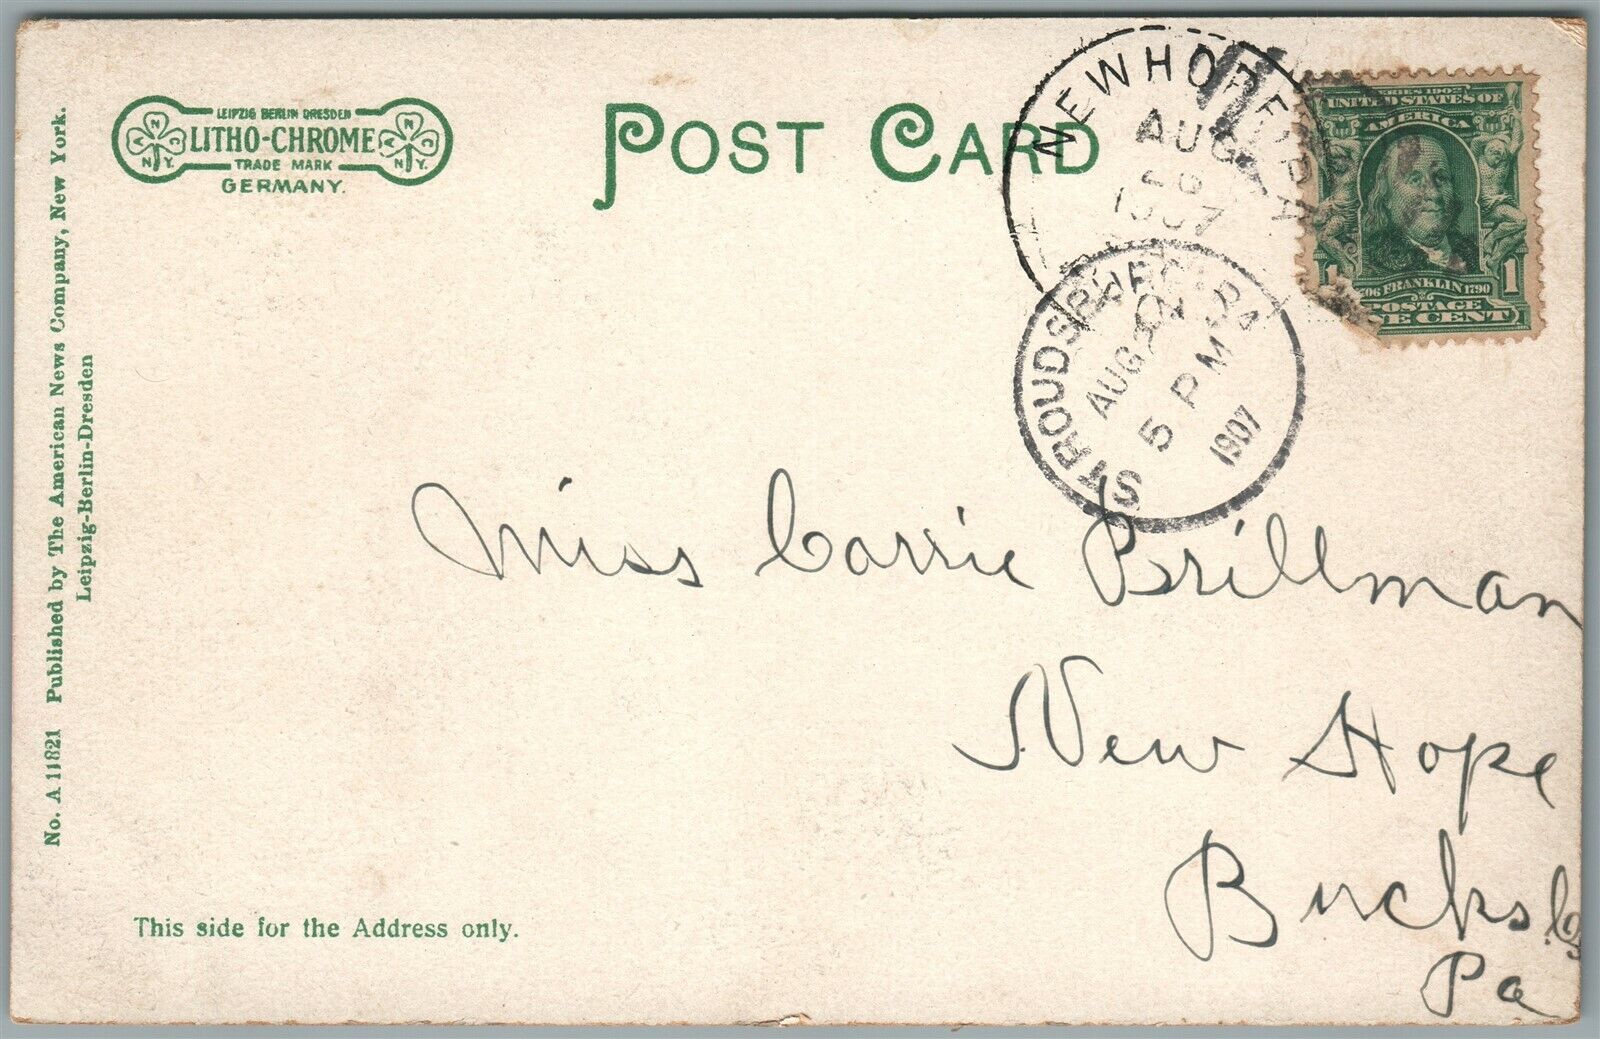 LEIPZIG BERLIN DRESDEN
LITHO-CHROME
TRADE MARK
GERMANY.
N.Y.
N.Y.
POST CARD
NEW HOPE
PA
AUG
1907
STROUDSBURG, PA
AUG
5 PM
1907
SERIES 1902
UNITED STATES OF
AMERICA
1
1
1706 FRANKLIN 1790
POSTAGE
ONE CENT
No. A 11821 Published by The American News Company, New York.
Leipzig-Berlin-Dresden
Miss Carrie Brillman
New Hope
Bucks Co
Pa
This side for the Address only.